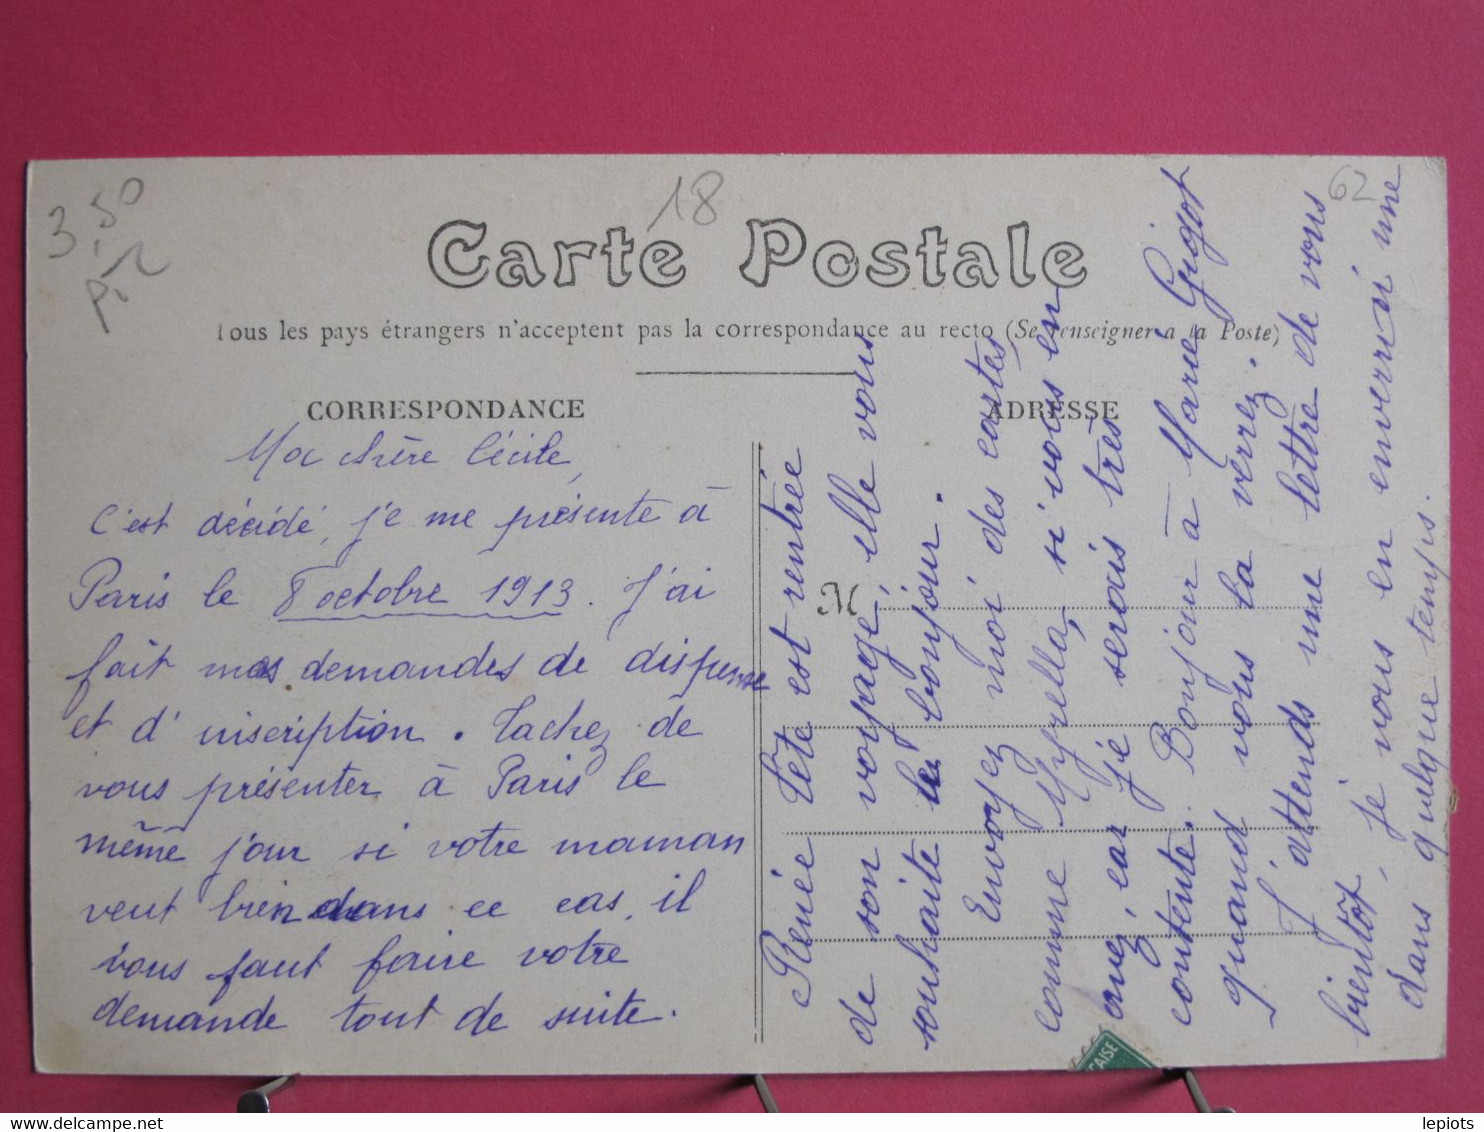 3,50
18
62
Carte Postale
Tous les pays étrangers n'acceptent pas la correspondance au recto (Se renseigner à la Poste)
CORRESPONDANCE
ADRESSE
Ma chère Cécile,
C'est décidé, je me présente à
Paris le 8 octobre 1913. J'ai
fait mes demandes de dispense
et d'inscription. Tachez de
vous présenter à Paris le
même jour si votre maman
veut bien dans ce cas, il
vous faut faire votre
demande tout de suite.
M
Renée Tête est rentrée
de son voyage, elle vous
souhaite le bonjour.
Envoyez moi des cartes,
comme Myrella, si vous en
avez, car je serais très
contente. Bonjour à Marie Gigot
quand vous la verrez.
J'attends une lettre de vous
bientôt, je vous en enverrai une
dans quelque temps.
ÇAISE
www.delcampe.net
lepiots